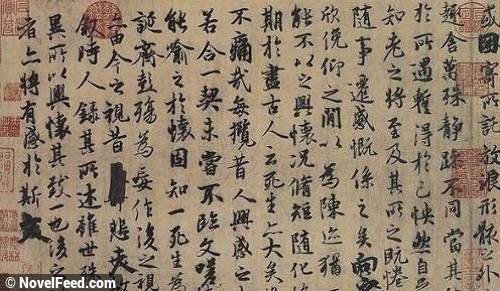 或因寄所託放浪形骸之外
趣舍萬殊靜躁不同當其
於所遇蹔得於己怏然自
知老之將至及其所之既惓
隨事遷感慨係之矣向
欣俛仰之閒以為陳迹猶
能不以之興懷況脩短隨化
期於盡古人云死生亦大矣
不痛哉每攬昔人興感之
若合一契未嘗不臨文嗟
能喻之於懷固知一死生為
誕齊彭殤為妄作後之視
亦由今之視昔悲夫
敘時人錄其所述雖世殊
異所以興懷其致一也後之
者亦將有感於斯文
© NovelFeed.com